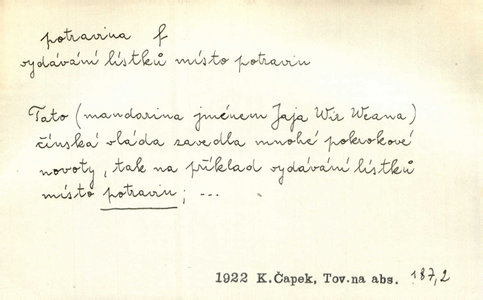 potravina f
vydávání lístků místo potravin
Tato (mandarina jménem Jaja Wir Weana)
čínská vláda zavedla mnohé pokrokové
novoty, tak na příklad vydávání lístků
místo potravin; ...
1922 K.Čapek, Tov.na abs. 187,2